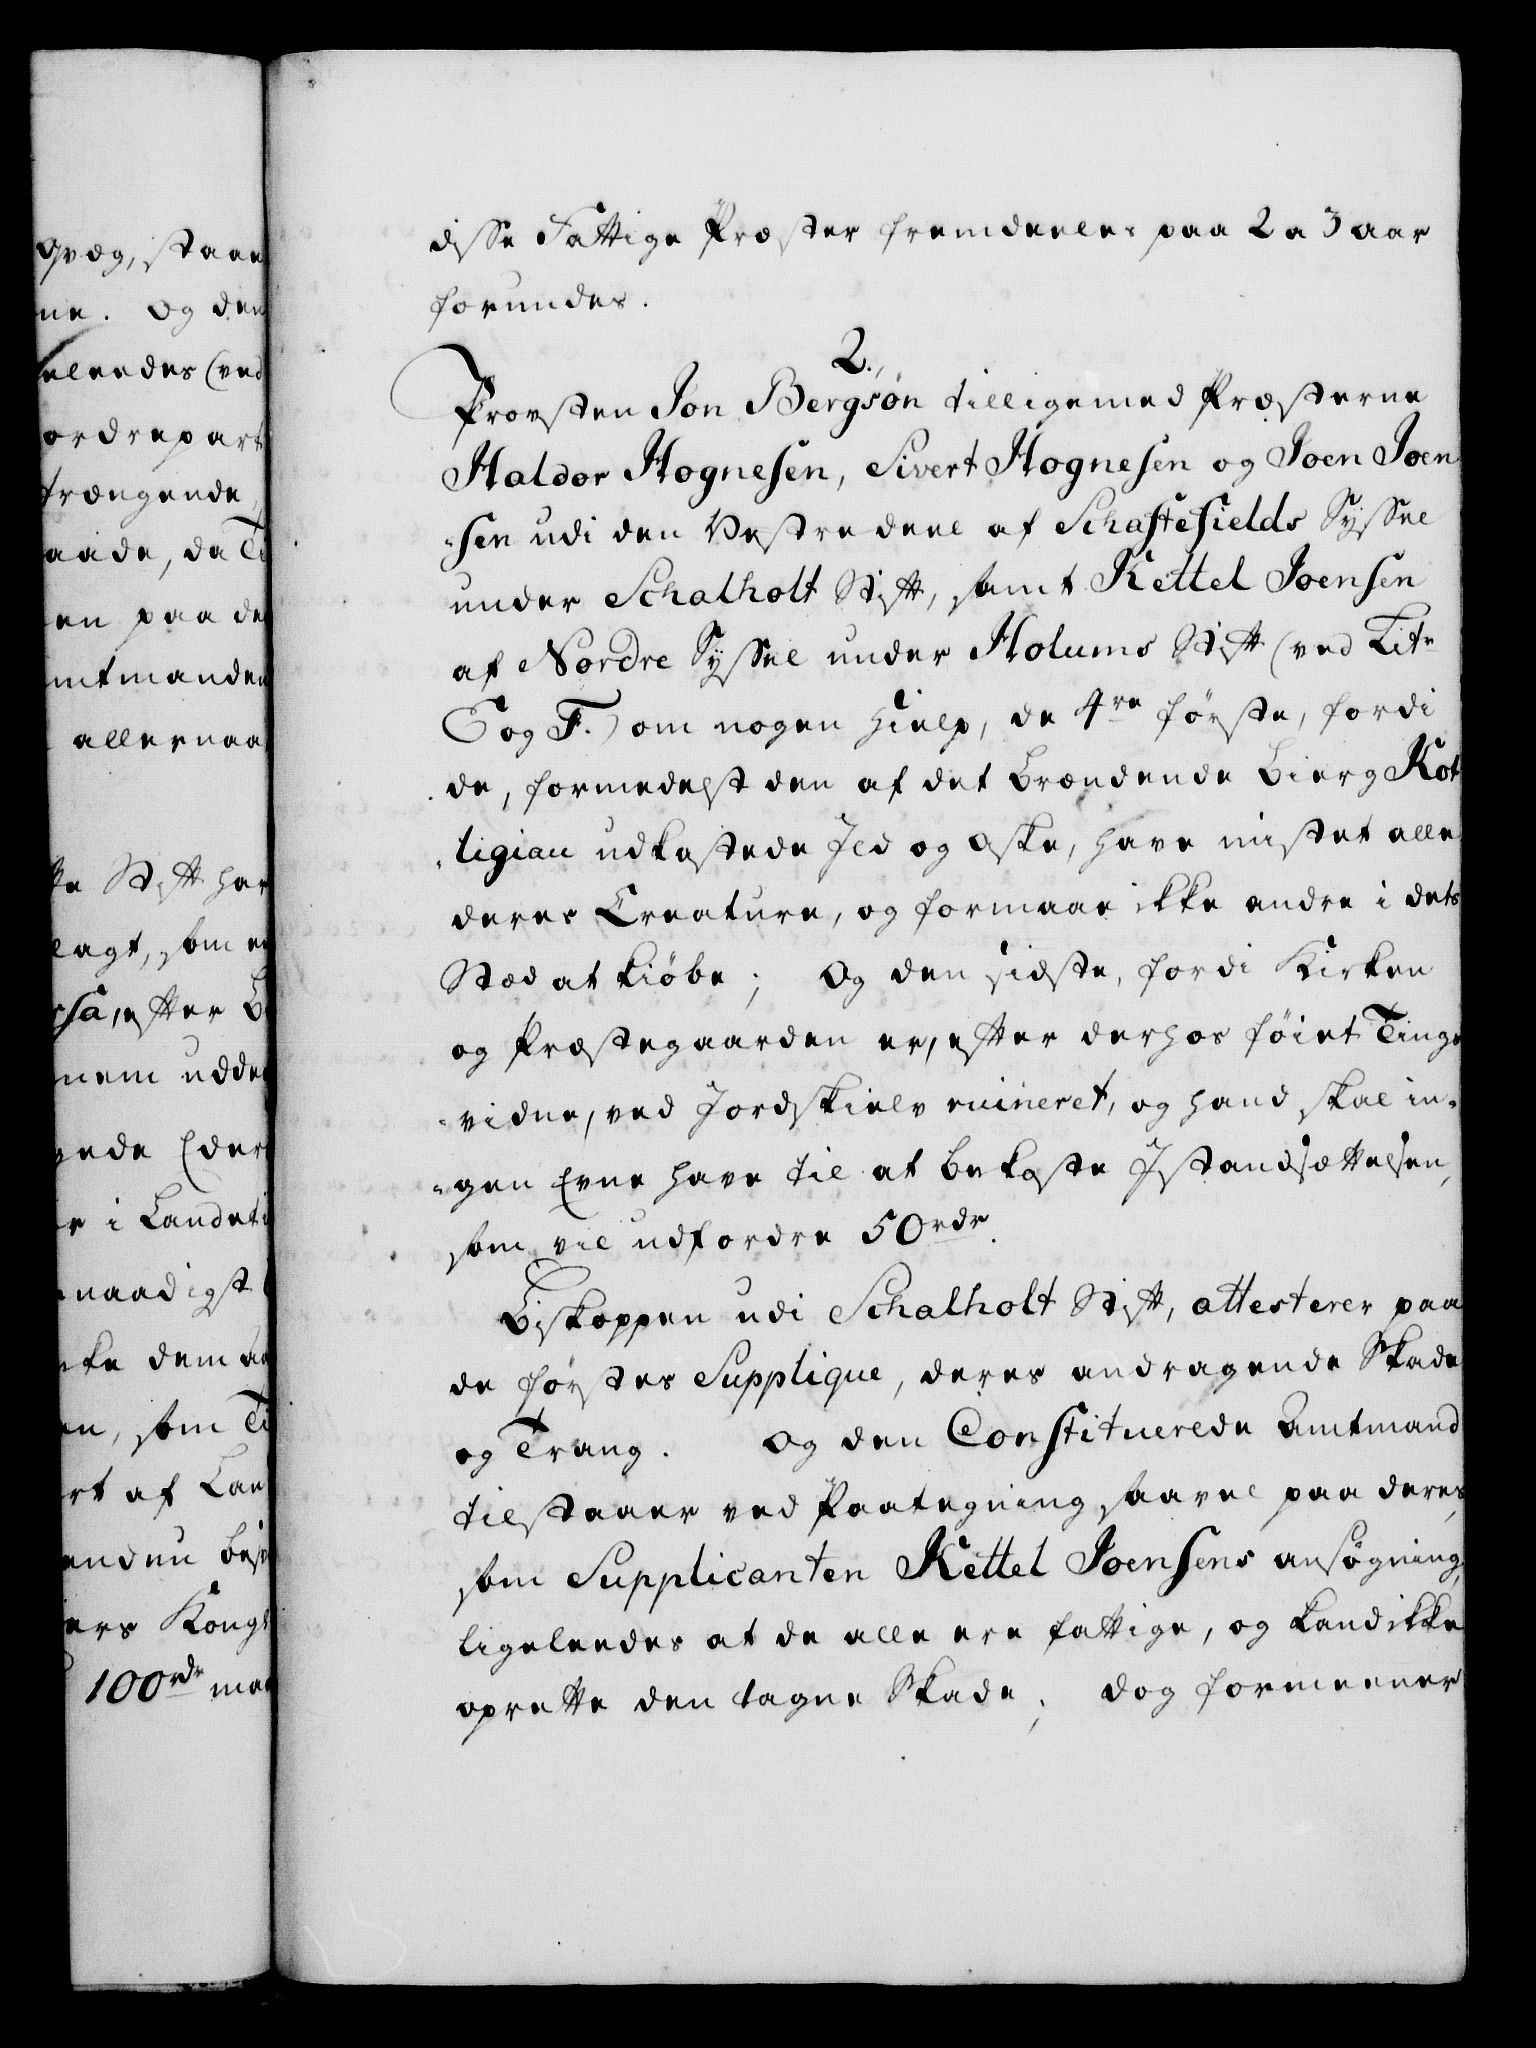 qvæg, staae
ne. Og den
eleedes (ved
ordrepart
trængende,
aade, da Ti
en paa de
mtmanden
allernaa
ke Stift har
lagt, som er
rsa, efter B
nem udde
gede Eder
er i Landet
naadigst
nke dem aa
en, som Ti
rt af Lan
endnu besv
ers Kongl
100rdr maa
disse Fattige Præster fremdeeles paa 2 a 3 aar
forundes.
2.,
Provsten Jon Bergsøn tilligemed Præsterne
Haldor Hognesen, Sivert Hognesen og Joen Joen
-sen udi den Vestre deel af Schaftefields Syssel
under Schalholt Stift, samt Kettel Joensen
af Nordre Syssel under Holums Stift (ved Litr
E og F.) om nogen Hielp, de 4re første, fordi
de, formedelst den af det brændende Bierg Kot
-ligiau udkastede Ild og Aske, have mistet alle
deres Creature, og formaae ikke andre i dets
Stæd at kiöbe; Og den sidste, fordi Kirken
og Præstegaarden er, efter derhos föiet Tings
-vidne, ved Jordskielv ruineret, og hand skal in-
-gen Evne have til at bekoste Istandsættelsen,
som vil udfordre 50rdr.
Biskoppen udi Schalholt Stift, attesterer paa
de förstes Supplique, deres andragende Skade
og Trang. Og den Constituerede Amtmand
tilstaaer ved Paategning saavel paa deres,
som Supplicanten Kettel Joensens ansögning,
ligeleedes at de alle ere fattige, og kand ikke
oprette den tagne Skade; dog formeener